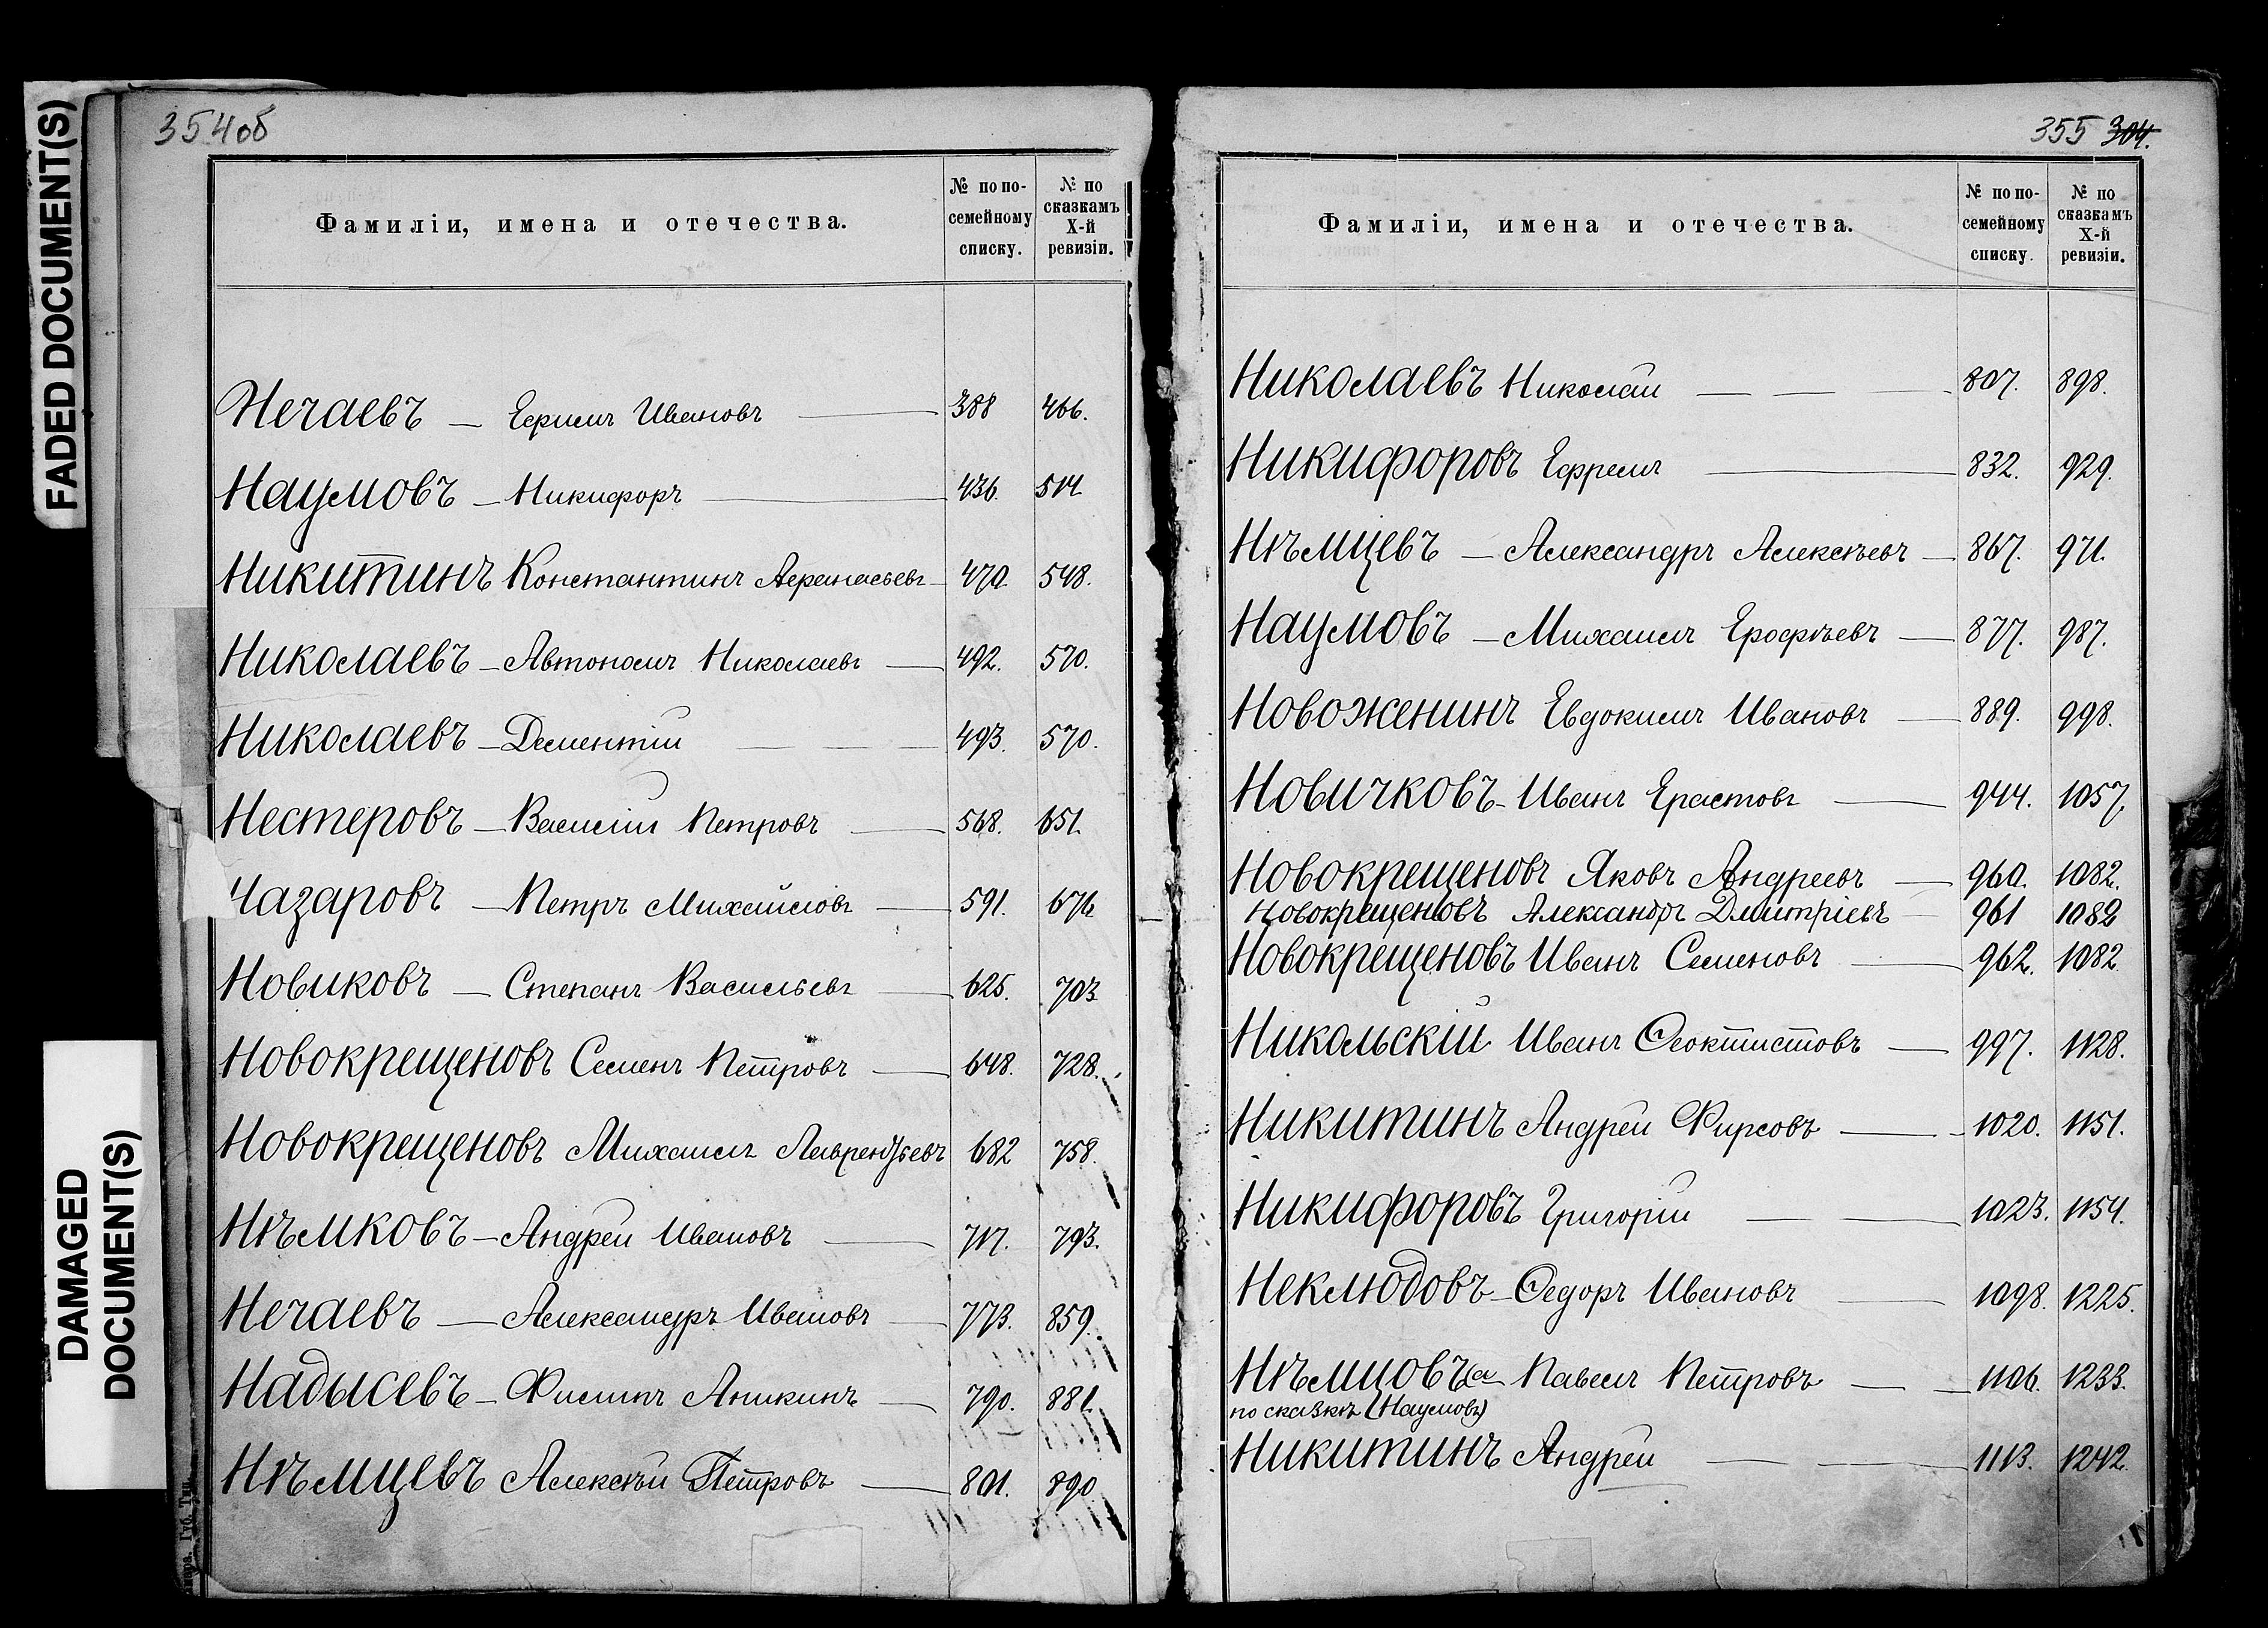 FADED DOCUMENT(S)
DAMAGED
DOCUMENT(S)
354об
Фамиліи, имена и отечества.
№ по по-
семейному
списку.
№ по
сказкамъ
X-й
ревизіи.
Нечаевъ — Ефимъ Ивановъ — 388 466.
Наумовъ — Никифоръ — 436. 514.
Никитинъ Константинъ Афанасьевъ — 470. 548.
Николаевъ — Автономъ Николаевъ — 492. 570.
Николаевъ — Дементій — 493. 570.
Нестеровъ — Василій Петровъ — 568. 651.
Назаровъ — Петръ Михайловъ — 591. 676.
Новиковъ — Степанъ Васильевъ — 625. 703
Новокрещеновъ Семенъ Петровъ — 648. 728.
Новокрещеновъ Михаилъ Лаврентьевъ 682 758.
Нѣмковъ — Андрей Ивановъ — 717. 793.
Нечаевъ — Александръ Ивановъ — 773. 859.
Надысевъ — Филипъ Аникинъ — 790. 881.
Нѣмцевъ Алексѣй Петровъ — 801. 890
Губ. Тип.
355 304.
Фамиліи, имена и отечества.
№ по по-
семейному
списку.
№ по
сказкамъ
X-й
ревизіи.
Николаевъ Николай — 807. 898.
Никифоровъ Ефремъ — 832. 929.
Нѣмцевъ — Александръ Алексѣевъ — 867. 971.
Наумовъ — Михаилъ Ерофѣевъ — 877. 987.
Новоженинъ Евдокимъ Ивановъ — 889. 998.
Новичковъ — Иванъ Ерастовъ — 944. 1057.
Новокрещеновъ Яковъ Андреевъ — 960. 1082.
Новокрещеновъ Александръ Дмитріевъ — 961 1082
Новокрещеновъ Иванъ Семеновъ — 962. 1082
Никольскій Иванъ Ѳеоктистовъ — 997. 1128.
Никитинъ Андрей Фирсовъ — 1020. 1151.
Никифоровъ Григорій — 1023. 1154.
Неклюдовъ — Ѳедоръ Ивановъ — 1098. 1225.
Павелъ Петровъ — 1106. 1233.
по сказкѣ (Наумовъ)
Никитинъ Андрей — 1113. 1242.